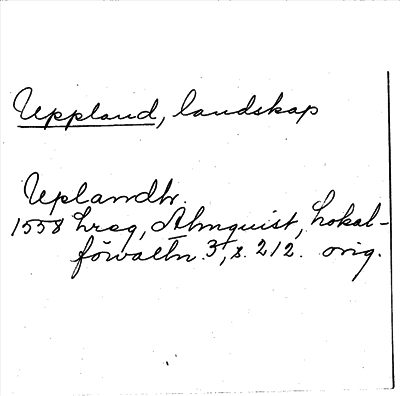 Uppland, landskap
Uplandh.
1558 hrsg, Almquist, Lokal-
förvaltn. 3, s. 212. orig.